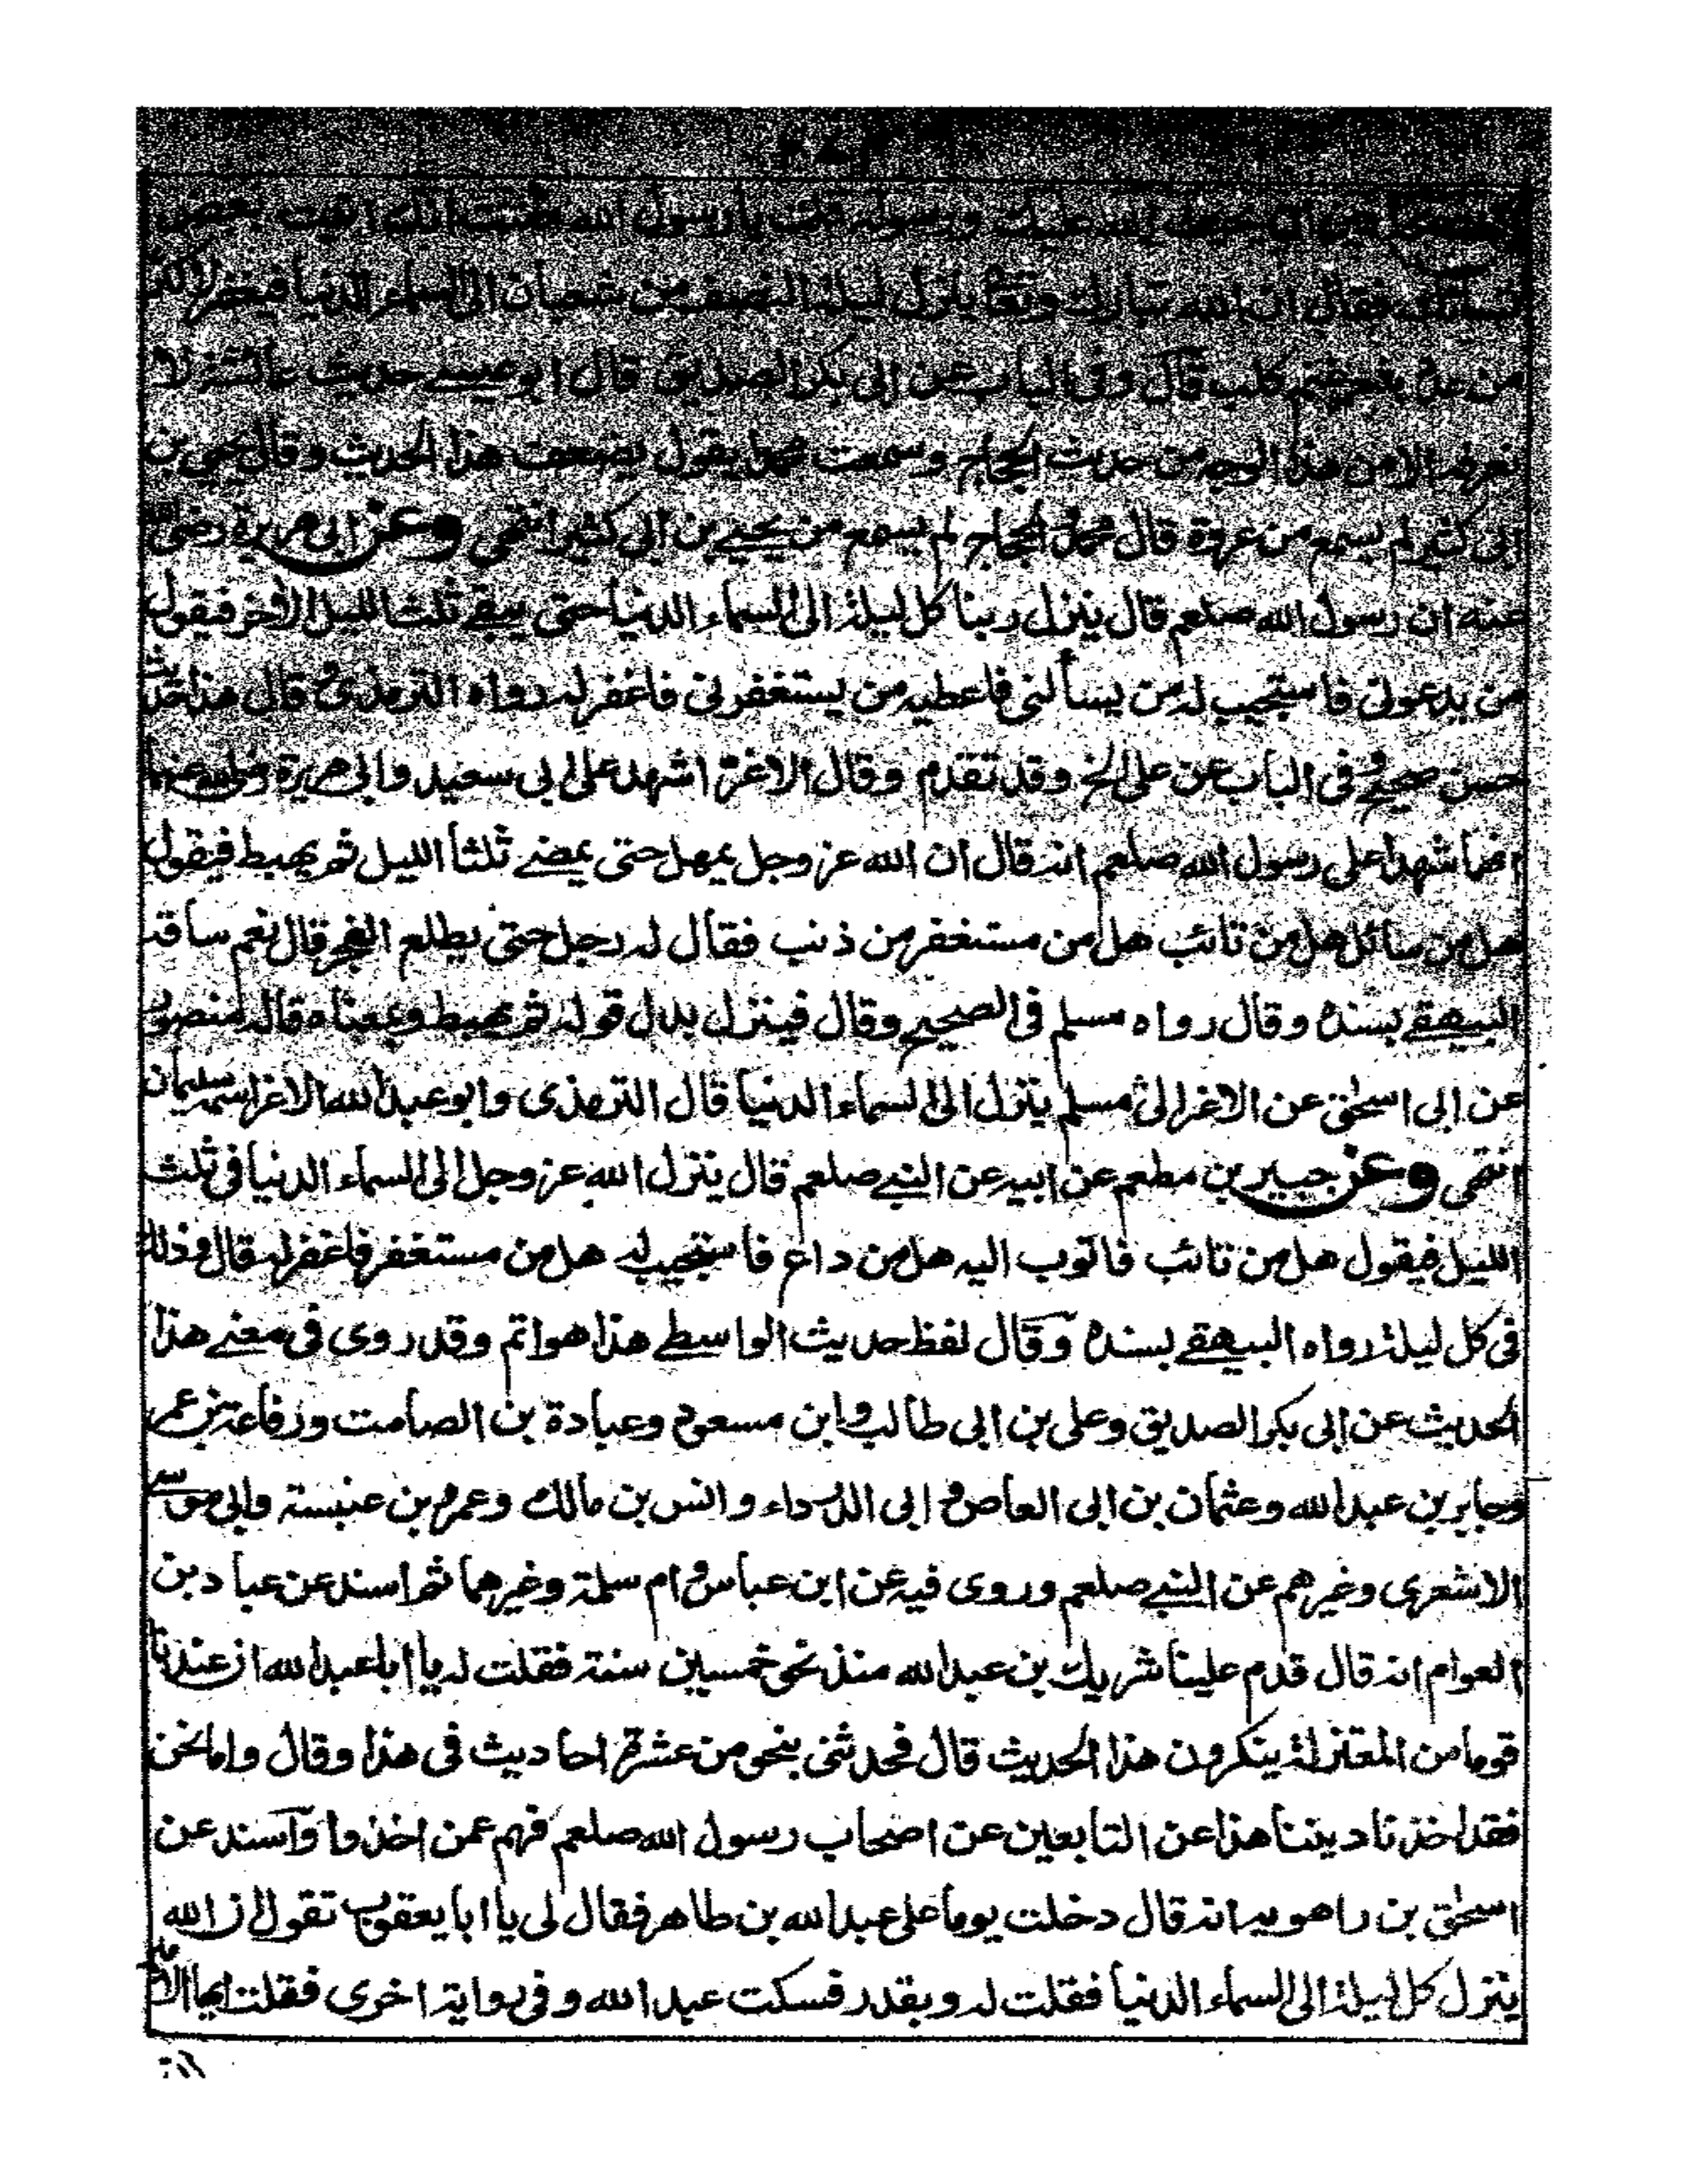 الله عليك ورسوله قلت يا رسول الله ظننت انك اتيت بعض
نسائك فقال ان الله تبارك وتعا ينزل ليلة النصف من شعبان الى السماء الدنيا فيغفر لاكثر
من عدد شعر غنم كلب قال وفى الباب عن ابى بكر الصديق قال ابو عيسے حديث عائشة لا
نعرفه الا من هذا الوجه من حديث الحجاج وسمعت محمدا يقول يضعف هذا الحديث وقال يحيى بن
ابى كثير لم يسمع من عروة قال محمد الحجاج لم يسمع من يحيے بن ابى كثير انتهى وعن ابى هريرة رضى الله
عنه ان رسول الله صلعم قال ينزل ربنا كل ليلة الى السماء الدنيا حتى يبقے ثلث الليل الاخر فيقول
من يدعونى فاستجيب له من يسألنى فاعطيه من يستغفرنى فاغفر له رواه الترمذى قال هذا حديث
حسن صحيح وفى الباب عن على الخ وقد تقدم وقال الاغر اشهد على ابى سعيد وابى هريرة رضى الله عنهما
انهما شهدا على رسول الله صلعم انه قال ان الله عز وجل يمهل حتى يمضے ثلثا الليل ثم يهبط فيقول
هل من سائل هل من تائب هل من مستغفر من ذنب فقال له رجل حتى يطلع الفجر قال نعم ساقه
البيهقے بسنده وقال رواه مسلم فى الصحيح وقال فينزل بدل قوله ثم يهبط وبمعناه قاله منصور
عن ابى اسحٰق عن الاغر ابى مسلم ينزل الى السماء الدنيا قال الترمذى وابو عبد الله الاغر اسمه سليمان
انتهى وعن جبير بن مطعم عن ابيه عن النبے صلعم قال ينزل الله عز وجل الى السماء الدنيا فى ثلث
الليل فيقول هل من تائب فاتوب اليه هل من داع فاستجيب له هل من مستغفر فاغفر له قال وذلك
فى كل ليلة رواه البيهقے بسنده وقال لفظ حديث الواسطے هذا هو اتم وقد روى فى معنے هذا
الحديث عن ابى بكر الصديق وعلى بن ابى طالب وابن مسعود وعبادة بن الصامت ورفاعة بن عمر
وجابر بن عبد الله وعثمان بن ابى العاص و ابى الدرداء وانس بن مالك وعمرو بن عنبسة وابى موسے
الاشعرى وغيرهم عن النبے صلعم وروى فيه عن ابن عباس وام سلمة وغيرهما ثم اسند عن عباد بن
العوام انه قال قدم علينا شريك بن عبد الله منذ نحو خمسين سنة فقلت له يا ابا عبد الله ان عندنا
قوما من المعتزلة ينكرون هذا الحديث قال فحدثنى بنحو من عشرة احاديث فى هذا وقال واما نحن
فقد اخذنا ديننا هذا عن التابعين عن اصحاب رسول الله صلعم فهم عمن اخذوا وآسند عن
اسحٰق بن راهويه انه قال دخلت يوما على عبد الله بن طاهر فقال لى يا ابا يعقوب تقول ان الله
ينزل كل ليلة الى السماء الدنيا فقلت له ويقدر فسكت عبد الله وفى رواية اخرى فقلت ايها الامير